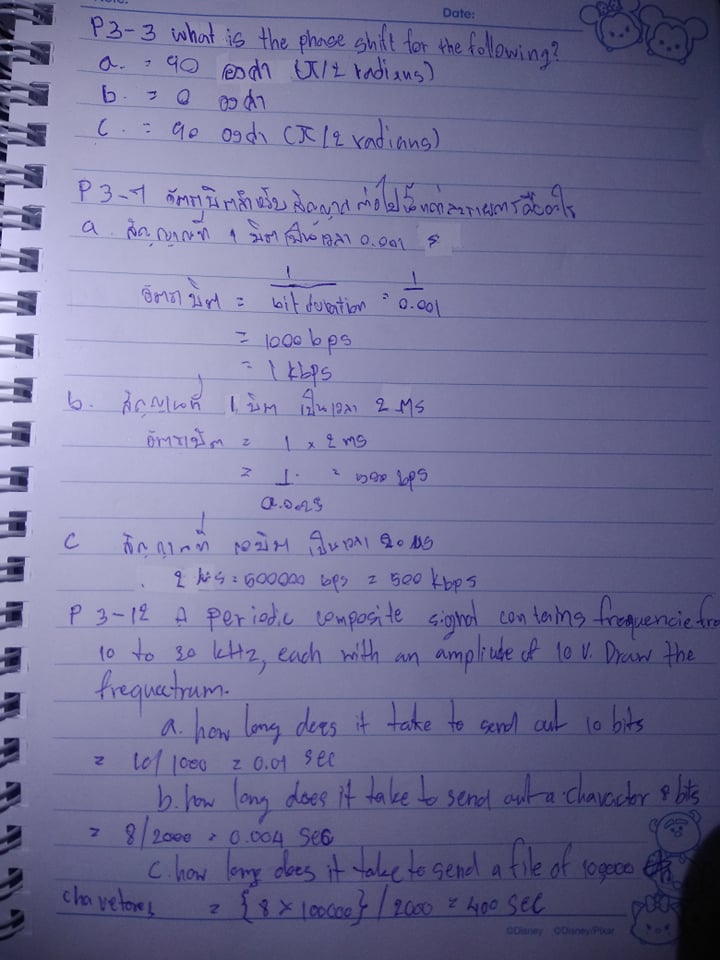 Date:
P3-3 what is the phase shift for the following?
a. = 90 องศา (π/2 radians)
b. = 0 องศา
c. = 90 องศา (π/2 radians)
P 3-7 อัตราบิตสำหรับสัญญาณต่อไปนี้
a. สัญญาณที่ 1 บิตเป็นเวลา 0.001 s
1 1
อัตราบิต = bit duration = 0.001
= 1000 bps
= 1 kbps
b. สัญญาณที่ 1 บิต เป็นเวลา 2 ms
อัตราบิต = 1 × 2 ms
= 1 = bps
c สัญญาณที่ บิต เป็นเวลา 20 μs
2 μs = 500000 bps = 500 kbps
P 3-12 A periodic composite signal contains frequencie fro
10 to 30 kHz, each with an ampliude of 10 V. Draw the
frequectrum.
a. how long does it take to send out 10 bits
= 10/1000 = 0.01 sec
b. how long does it take to send out a charactor 8 bits
= 8/2000 = 0.004 Sec
c. how long does it take to send a file of 100000
= {8 × 100000} / 2000 = 400 sec
©Disney ©Disney/Pixar